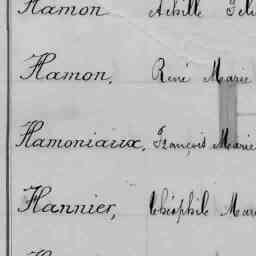 Hamon Achille
Hamon, René Marie
Hamoniaux, François Marie
Hannier, Théophile